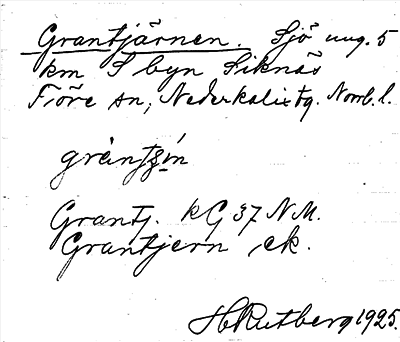 Grantjärnen. Sjö ung. 5
km S byn Siknäs
Töre sn, Nederkalix tg. Norrb. l.
gràntʒín
Grantj. kG 37 N M.
Grantjern , ek.
H Rutberg 1925.